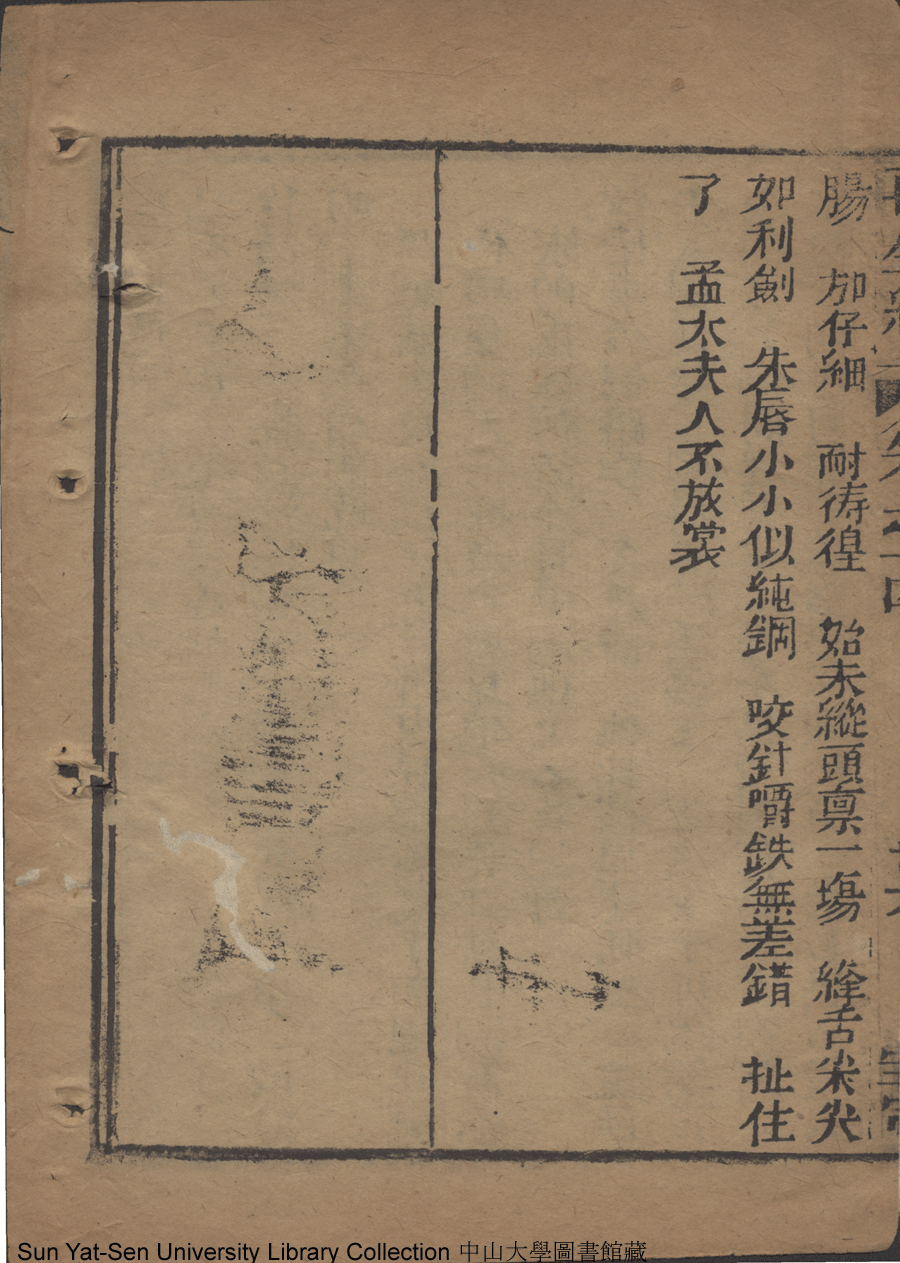 腸　加仔細　耐徬徨　始末縱頭禀一塲　絳舌尖尖
如利劍　朱唇小小似純鋼　咬針嚼鉄無差錯　扯住
了　孟太夫人不放裳
Sun Yat-Sen University Library Collection 中山大學圖書館藏